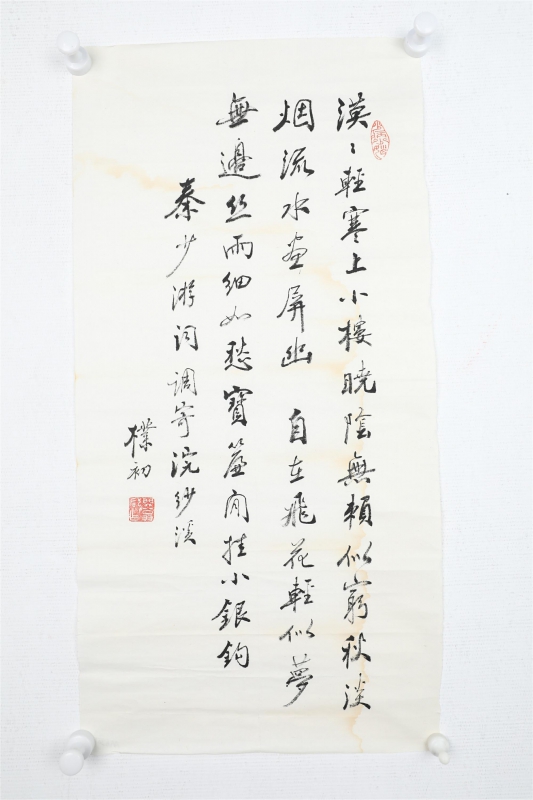 漠〻輕寒上小樓曉陰無賴似窮秋淡
烟流水畫屏幽 自在飛花輕似夢
無邊丝雨細如愁寶簾閒挂小銀鈎
秦少游词調寄浣紗溪
樸初